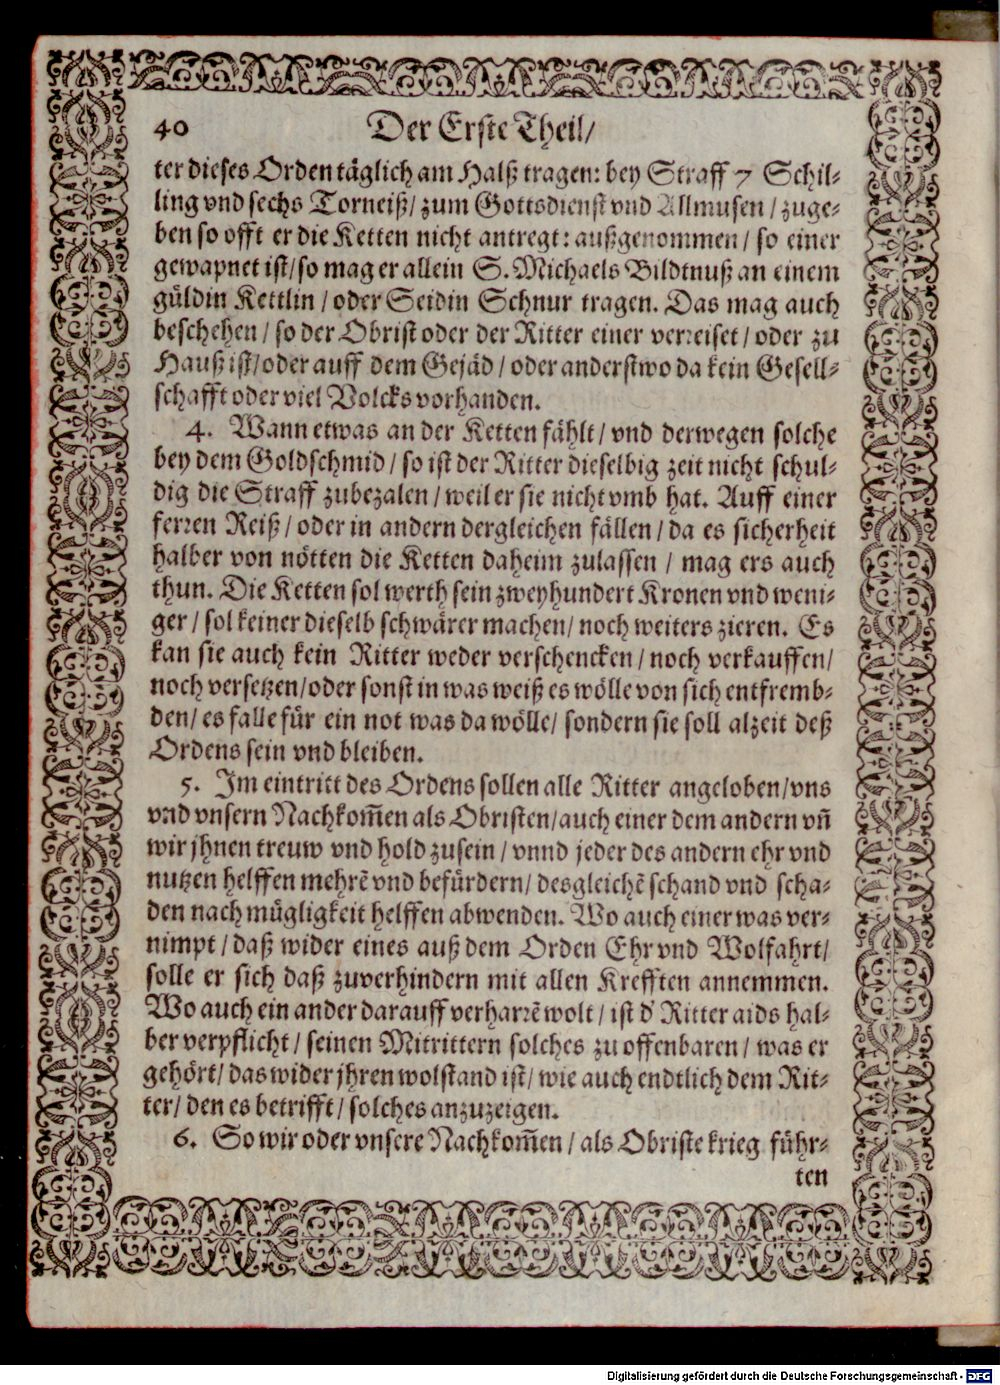 40 Der Erste Theil/
ter dieses Orden täglich am Halß tragen: bey Straff 7 Schil-
ling vnd sechs Torneiß/ zum Gottsdienst vnd Allmusen / zuge-
ben so offt er die Ketten nicht antregt: außgenommen/ so einer
gewapnet ist/ so mag er allein S. Michaels Bildtnuß an einem
güldin Kettlin / oder Seidin Schnur tragen. Das mag auch
beschehen / so der Obrist oder der Ritter einer verreiset/ oder zu
Hauß ist/ oder auff dem Gejäd / oder anderstwo da kein Gesell-
schafft oder viel Volcks vorhanden.
4. Wann etwas an der Ketten fählt/ vnd derwegen solche
bey dem Goldschmid/ so ist der Ritter dieselbig zeit nicht schul-
dig die Straff zubezalen/ weil er sie nicht vmb hat. Auff einer
ferren Reiß/ oder in andern dergleichen fällen/ da es sicherheit
halber von nötten die Ketten daheim zulassen / mag ers auch
thun. Die Ketten sol werth sein zweyhundert Kronen vnd weni-
ger/ sol keiner dieselb schwärer machen/ noch weiters zieren. Es
kan sie auch kein Ritter weder verschencken/ noch verkauffen/
noch versetzen/ oder sonst in was weiß es wölle von sich entfremb-
den/ es falle für ein not was da wölle/ sondern sie soll alzeit deß
Ordens sein vnd bleiben.
5. Im eintritt des Ordens sollen alle Ritter angeloben/ vns
vnd vnsern Nachkom̃en als Obristen/ auch einer dem andern vñ
wir jhnen treuw vnd hold zusein/ vnnd jeder des andern ehr vnd
nutzen helffen mehrẽ vnd befürdern/ desgleichẽ schand vnd scha-
den nach mügligkeit helffen abwenden. Wo auch einer was ver-
nimpt / daß wider eines auß dem Orden Ehr vnd Wolfahrt/
solle er sich daß zuverhindern mit allen Krefften annemmen.
Wo auch ein ander darauff verharrẽ wolt/ ist d' Ritter aids hal-
ber verpflicht/ seinen Mitrittern solches zu offenbaren/ was er
gehört/ das wider jhren wolstand ist/ wie auch endtlich dem Rit-
ter/ den es betrifft/ solches anzuzeigen.
6. So wir oder vnsere Nachkom̃en/ als Obriste krieg führ-
ten
Digitalisierung gefördert durch die Deutsche Forschungsgemeinschaft - DFG